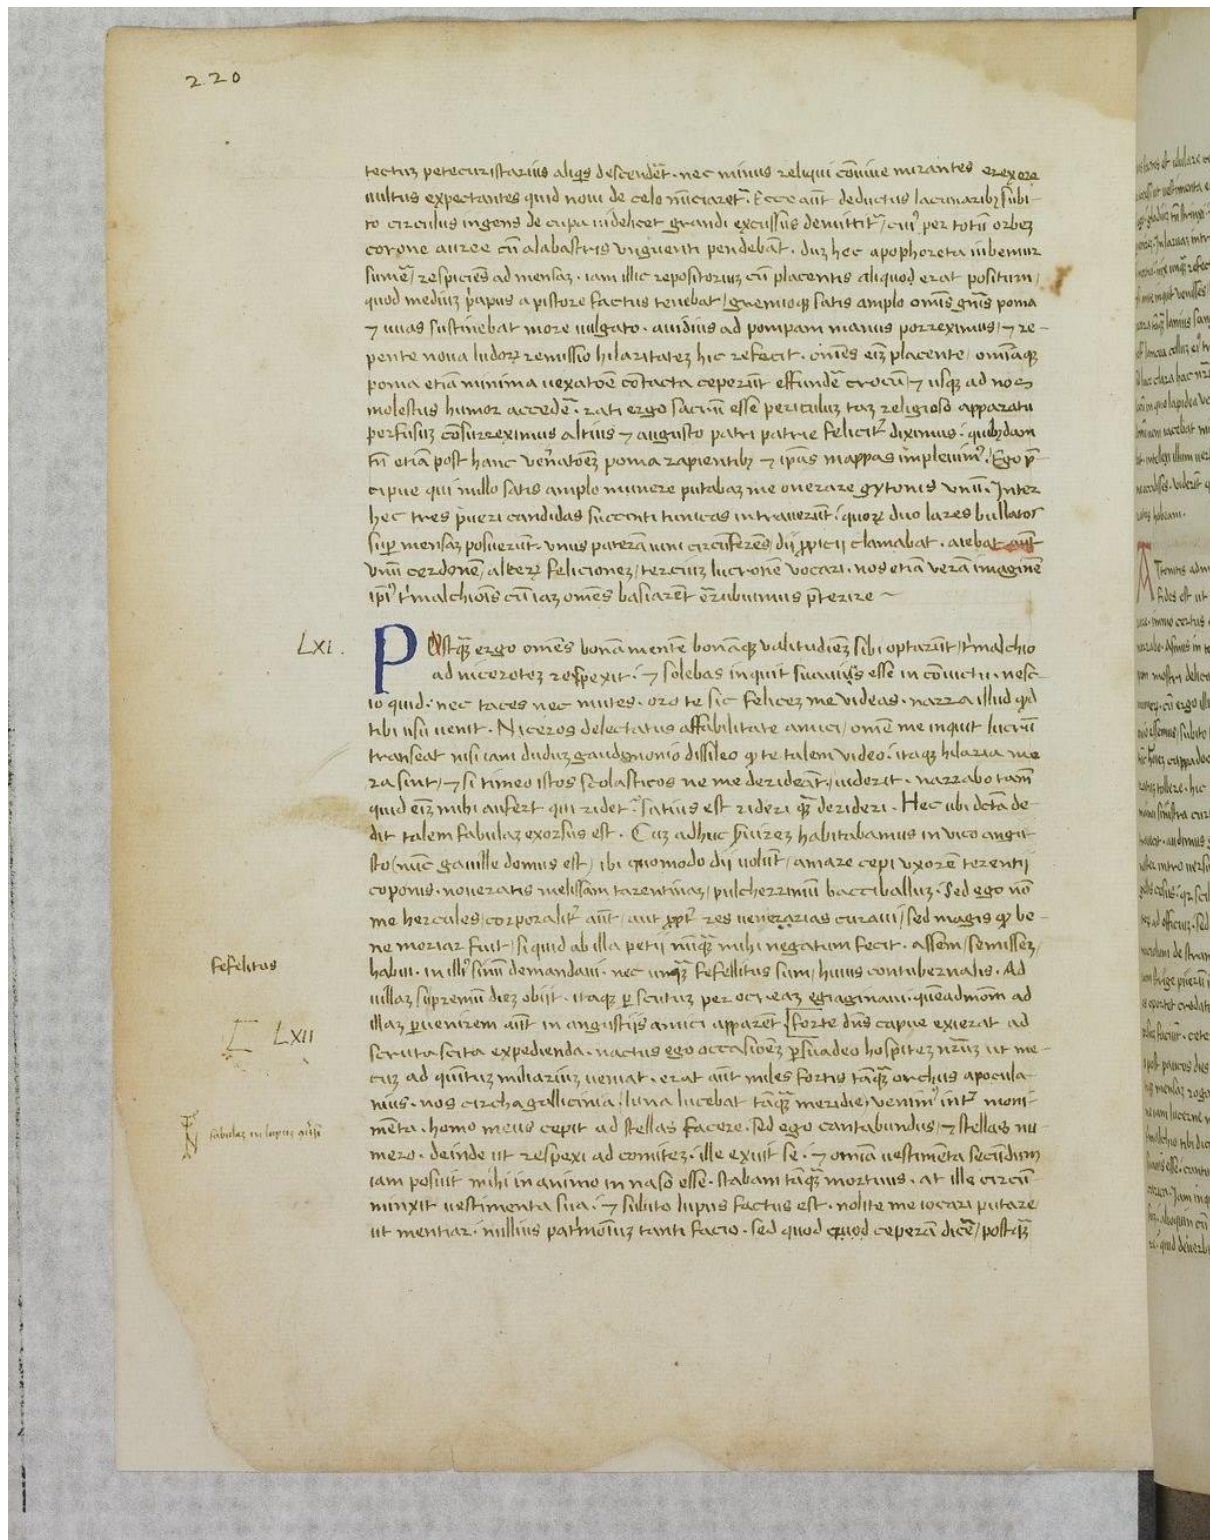 220
tectuz petecuristarius aliqis descenderet. nec minus reliqui conuiue mirantes erexere
uultus expectantes quid noui de celo nunciaret. Ecce aut deductus lacunaribz subi-
to circulus ingens de cupa uidelicet grandi excussus demittitr, cui9 per totu orbez
corone auree cu alabastris unguenti pendebat. duz hec apophoreta iubemur
sumere, respiciens ad mensaz. iam illic repositoriuz cu placentis aliquod erat positum,
quod mediuz priapus a pistore factus tenebat, gremioqz satis amplo omis gnis poma
& uuas sustinebat more uulgato. auidius ad pompam manus porreximus, & re-
pente noua ludorz remissio hilaritatez hic refecit. omes eiz placente, omiaqz
poma etia minima uexatoe contacta ceperut effundere crocu, & usqz ad nos
molestus humor accedere. rati ergo sacru esse periculuz taz religioso apparatu
perfusuz consurreximus altius & augusto patri patrie felicitr diximus. quibzdam
tn etia post hanc uenatoez poma rapientibz & ipas mappas impleuim9. Ego pre-
cipue qui nullo satis amplo munere putabaz me onerare gytonis unu. Inter
hec tres pueri candidas succinti tunicas intrauerut. quorz duo lares bullatos
sup mensaz posuerut. unus patera uini circuferens, dij propicij clamabat. aiebat aut
unu cerdone, alterz felicionez, terciuz lucrone uocari. nos etia uera imagine
ipi9 trimalchiois cu iaz omes basiaret erubuimus preterire ~
LXI.
Postqz ergo omes bona mente bonaqz ualitudiez sibi optarut, trimalchio
ad nicerotez respexit. & solebas inquit suauius esse in conuictu. nesc-
io quid. nec taces nec mutes. oro te sic felicez me uideas. narra illud qd
tibi usu uenit. Niceros delectatus affabilitate amici, ome me inquit lucru
transeat nisi iam duduz gaudimonio dissileo qz te talem uideo. itaqz hilaria me
ra sint, & si timeo istos scolasticos ne me derideat, uiderit. narrabo tam
quid eiz mihi aufert qui ridet. satius est rideri qz derideri. Hec ubi dicta de-
dit talem fabulaz exorsus est. Cuz adhuc seruirez habitabamus in uico angu-
sto (nuc gauille domus est) ibi quomodo dij uolut, amare cepi uxore terentij
coponis. noueratis melissam tarentinaz, pulcherrimu bacciballuz. sed ego no
me hercules, corporalitr aut, aut proptr res uenerarias curaui, sed magis qz be-
ne moriar fuit, si quid ab illa petij nuqz mihi negatum fecit. assem, semissez,
fefelitus
habui. in illi9 sinu demandaui. nec unqz fefellitus sum, huius contubernalis. Ad
uillaz supremu diez obijt. itaqz per scutuz per ocreaz egiaginaui. queadmom ad
illaz peruenirem aut in angustijs amici apparent. Forte dns capue exierat ad
LXII
scruta scita expedienda. nactus ego occasioez persuadeo hospitez nruz ut me-
cuz ad quintuz miliariuz ueniat. erat aut miles fortis taqz orchus apocula-
mus. nos circha gallicinia, luna lucebat taqz meridie, uenim9 intr moni-
fabulaz in lupuz
menta. homo meus cepit ad stellas facere. sed ego cantabundus, & stellas nu
mero. deinde ut respexi ad comitez. ille exuit se. & omia uestimenta secundum
iam posuit mihi in animo in naso esse. stabam taqz mortuus. at ille circu
minxit uestimenta sua. & subito lupus factus est. nolite me iocari putare,
ut mentiar. nullius patrimoniuz tanti facio. sed quod quod cepera dicere, postqz